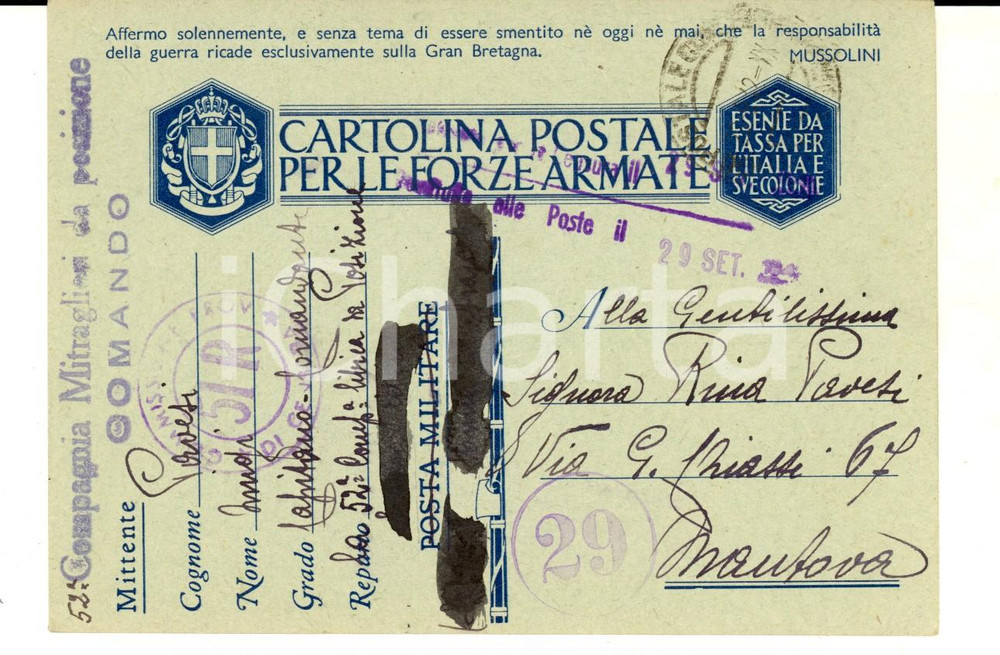 Affermo solennemente, e senza tema di essere smentito nè oggi nè mai, che la responsabilità
della guerra ricade esclusivamente sulla Gran Bretagna.
MUSSOLINI
CARTOLINA POSTALE
PER LE FORZE ARMATE
ESENTE DA
TASSA PER
L'ITALIA E
SVE COLONIE
alle Poste il
29 SET.
52ª Compagnia Mitraglieri da posizione
COMANDO
Mittente
Cognome Pavesi
Nome Luigi
Grado Capitano - Comandante
Reparto 52ª Comp.ª
da Posizione
POSTA MILITARE
51R
29
Alla Gentilissima
Signora Rina Pavesi
Via G. Chiassi 67
Mantova
icharta